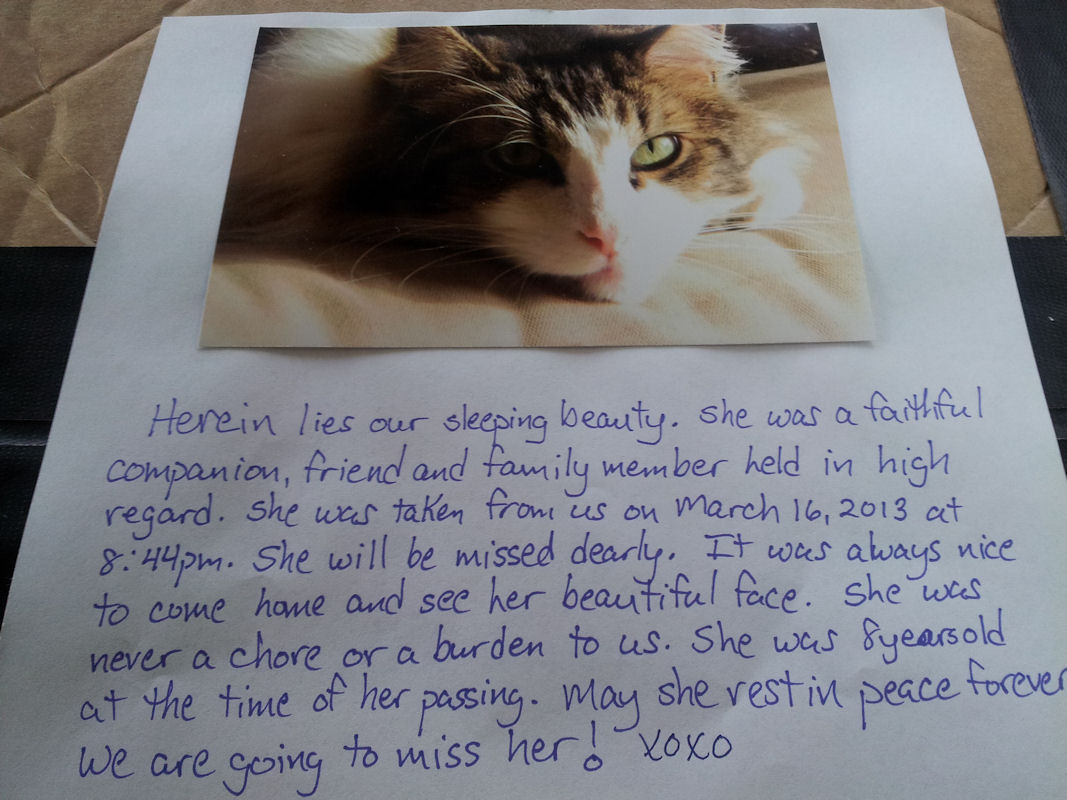 Herein lies our sleeping beauty. She was a faithful
companion, friend and family member held in high
regard. She was taken from us on March 16, 2013 at
8:44pm. She will be missed dearly. It was always nice
to come home and see her beautiful face. She was
never a chore or a burden to us. She was 8 years old
at the time of her passing. May she rest in peace forever
We are going to miss her! xoxo